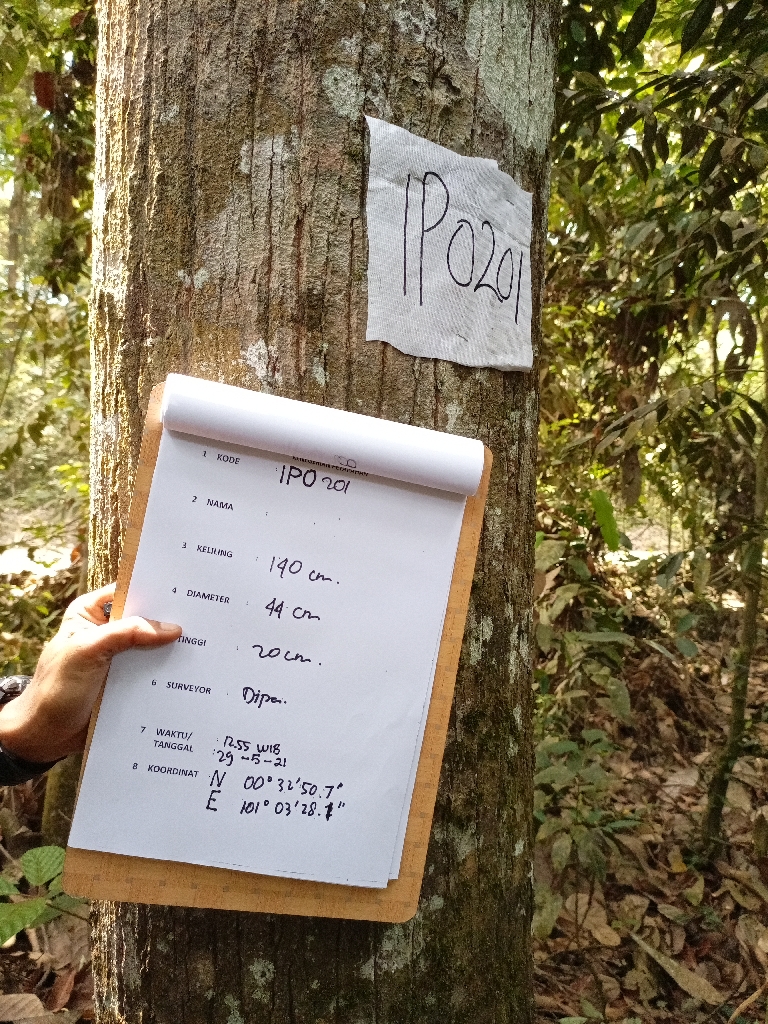 IPO201
1 KODE : IPO 201
2 NAMA :
3 KELILING : 140 cm.
4 DIAMETER : 44 cm
TINGGI 20 cm.
6 SURVEYOR : Dipa.
7 WAKTU/ : 12.55 WIB
TANGGAL : 29 -5-21
8 KOORDINAT N 00° 32' 50.7"
E 101° 03' 28.1"